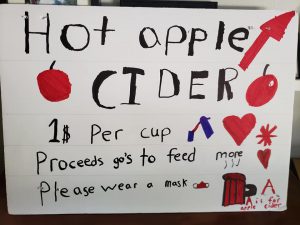 Hot apple
CIDER
1$ Per cup
Proceeds go's to feed more
Please wear a mask
A
A is for
apple cider